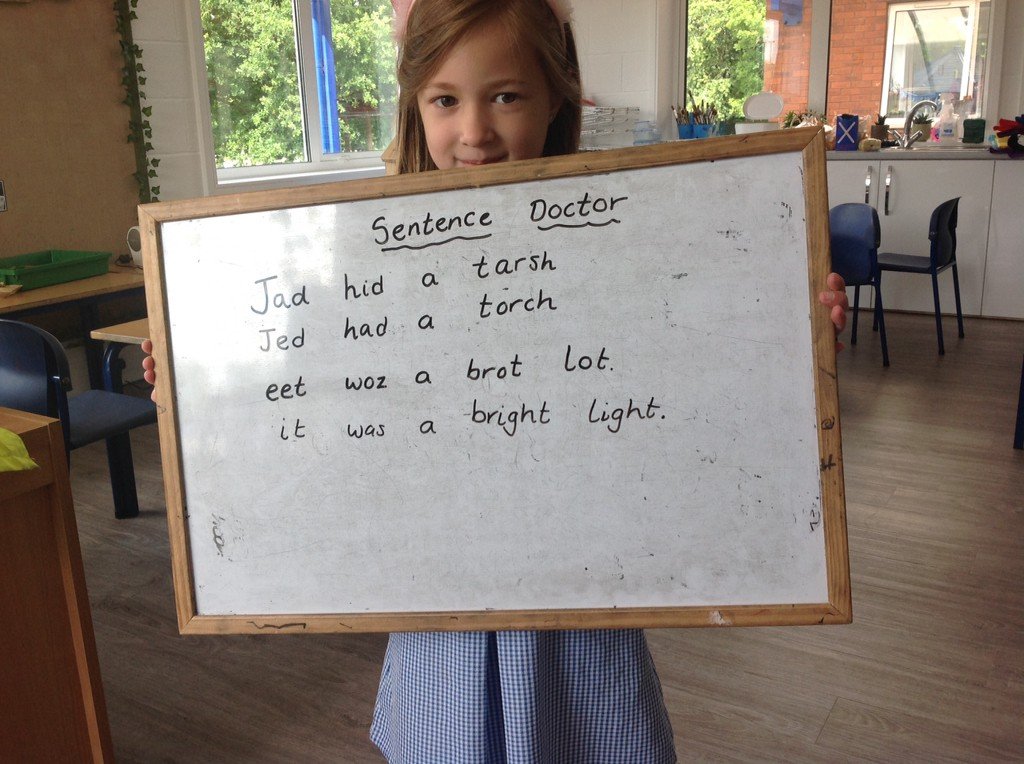 Sentence Doctor
Jad hid a tarsh
Jed had a torch
eet woz a brot lot.
it was a bright light.